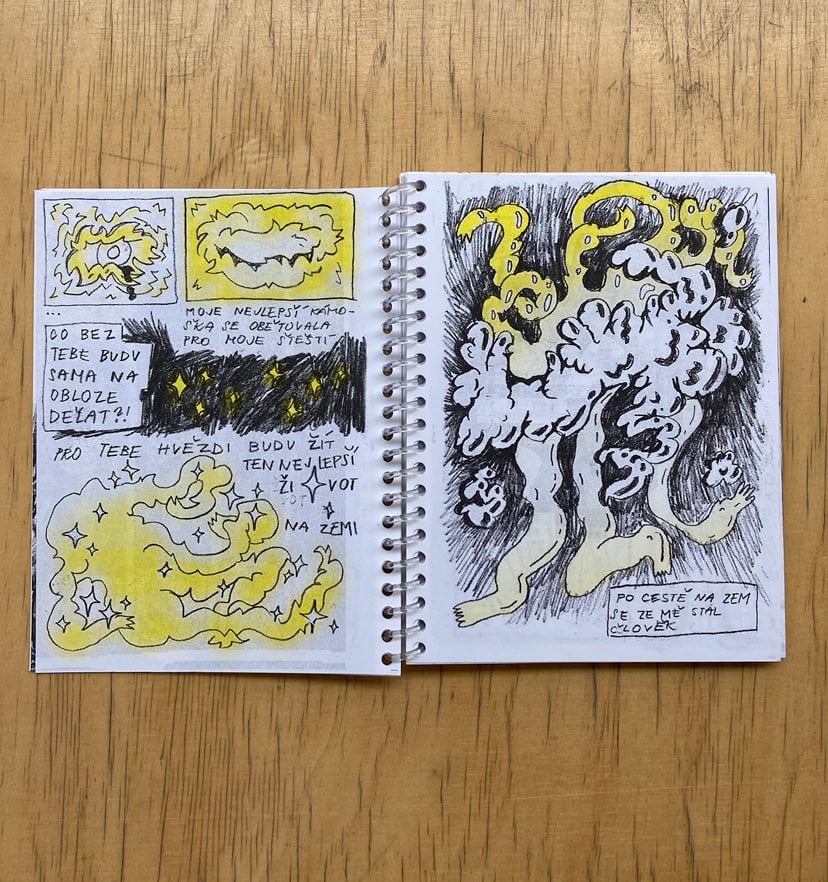 ...
MOJE NEJLEPŠÍ KÁMO-
ŠKA SE OBĚTOVALA
PRO MOJE ŠTĚSTÍ
CO BEZ
TEBE BUDU
SAMA NA
OBLOZE
DĚLAT?!
PRO TEBE HVĚZDI BUDU ŽÍT
TEN NEJLEPŠÍ
ŽIVOT
NA ZEMI
PO CESTĚ NA ZEM
SE ZE MĚ STAL
ČLOVĚK